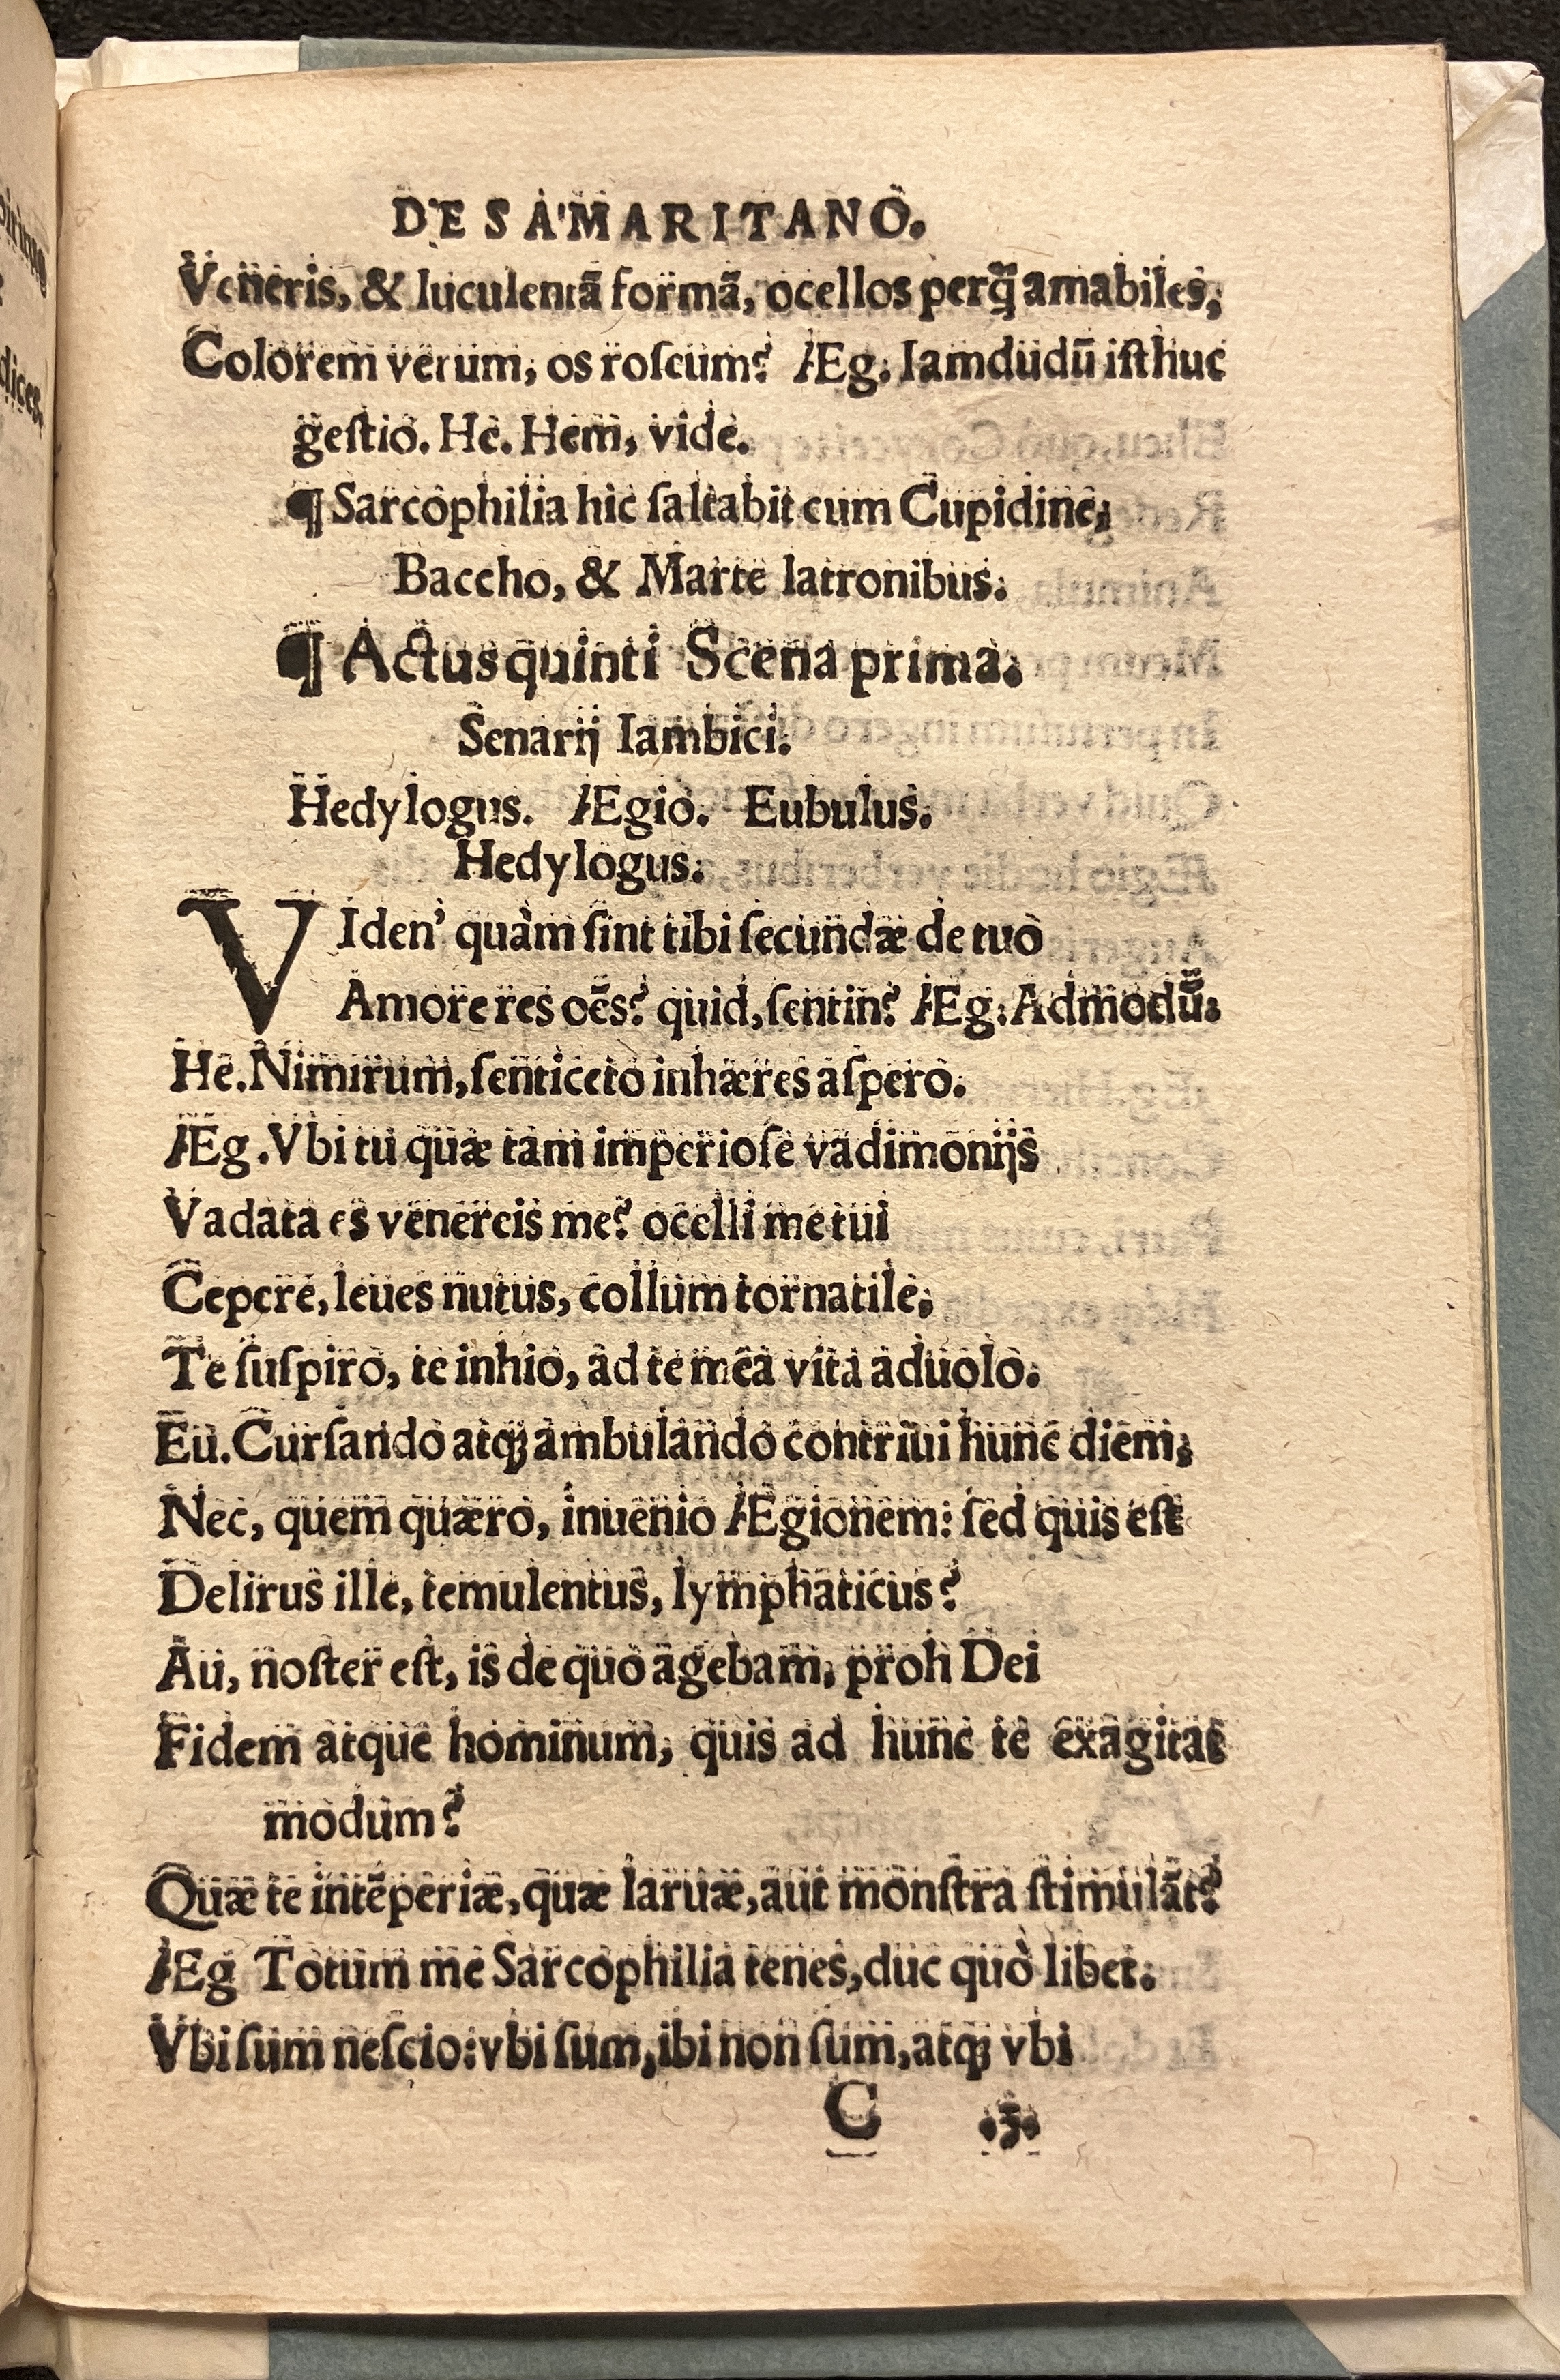 DE SAMARITANO.
Veneris, & luculentã formã, ocellos perq̃ amabiles,
Colorem verum, os roſeum? Æg. Iamdudũ iſthuc
geſtio. He. Hem, vide.
¶ Sarcophilia hic ſaltabit cum Cupidine,
Baccho, & Marte latronibus.
¶ Actus quinti Scena prima.
Senarij Iambici.
Hedylogus. Ægio. Eubulus.
Hedylogus.
VIden' quàm ſint tibi ſecundæ de tuo
Amore res oẽs? quid, ſentin? Æg. Admodũ.
He. Nimirum, ſenticeto inhæres aſpero.
Æg. Vbi tu quæ tam imperioſe vadimonijs
Vadata es venereis me? ocelli me tui
Cepere, leues nutus, collum tornatile,
Te ſuſpiro, te inhio, ad te mea vita aduolo.
Eu. Curſando atq; ambulando contriui hunc diem,
Nec, quem quæro, inuenio Ægionem: ſed quis eſt
Delirus ille, temulentus, lymphaticus?
Au, noſter eſt, is de quo agebam, proh Dei
Fidem atque hominum, quis ad hunc te exagitat
modum?
Quæ te intẽperiæ, quæ laruæ, aut monſtra ſtimulãt?
Æg Totum me Sarcophilia tenes, duc quò libet.
Vbi ſum neſcio: vbi ſum, ibi non ſum, atq; vbi
C .3.